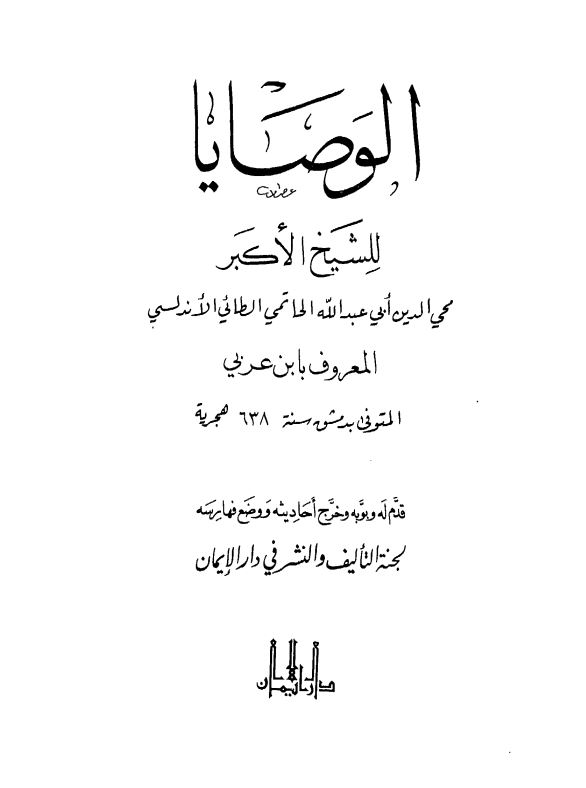 الوصايا
للشيخ الأكبر
محي الدين أبي عبدالله الحاتمي الطائي الأندلسي
المعروف بابن عربي
المتوفى بدمشق سنة ٦٣٨ هجرية
قدَّم له وبوَّبه وخرَّج أحاديثه ووضع فهارسه
لجنة التأليف والنشر في دار الإيمان
دار الإيمان